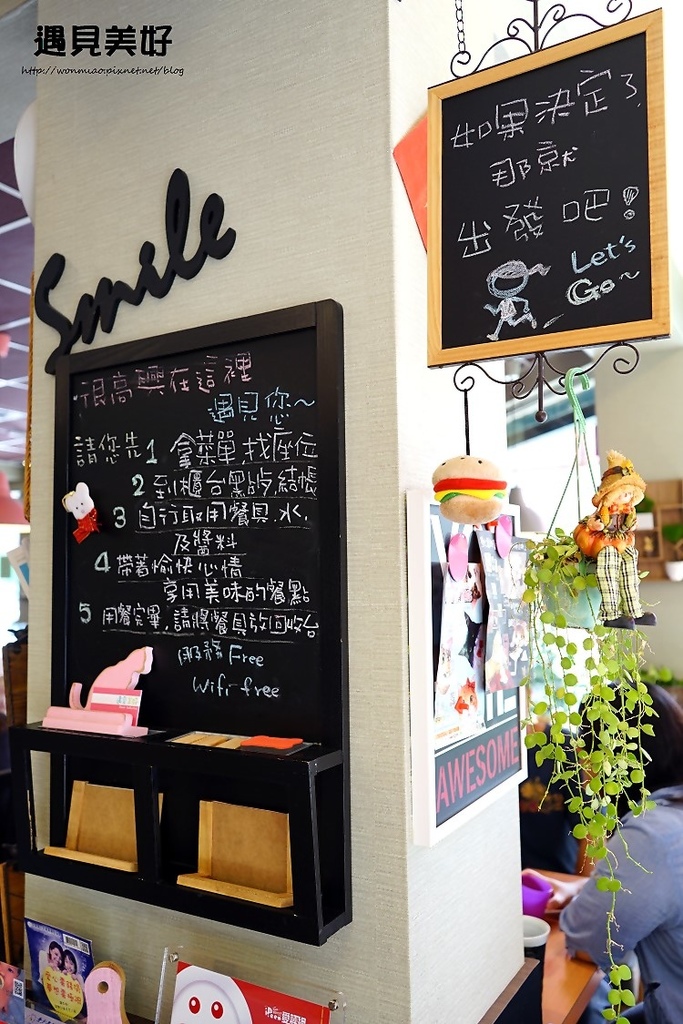 遇見美好
http://wonmiao.pixnet.net/blog
Smile
很高興在這裡
遇見您~
請您先 1 拿菜單,找座位
2 到櫃台點餐,結帳
3 自行取用餐具.水.
及醬料
4 帶著愉快心情
享用美味的餐點
5 用餐完畢,請將餐具放回收台
服務Free
Wifi-free
如果決定了,
那就
出發吧!
Let's
Go~
AWESOME